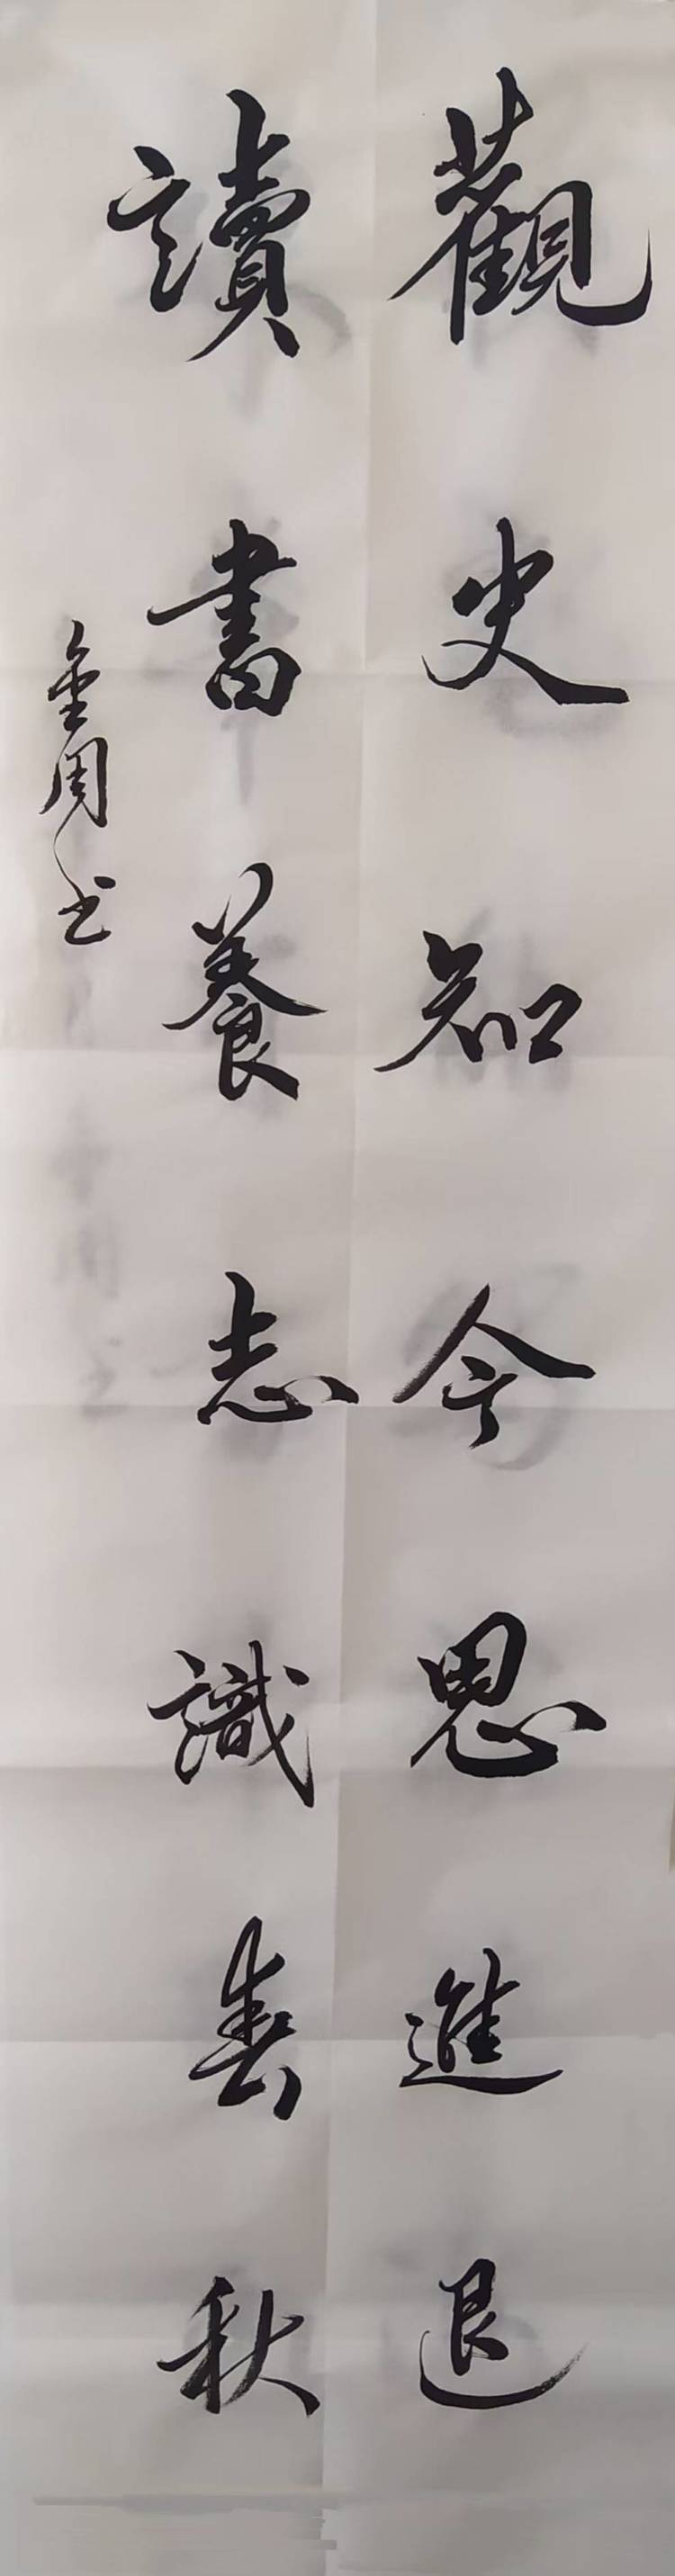 觀史知今思進退
讀書養志識春秋
金周书